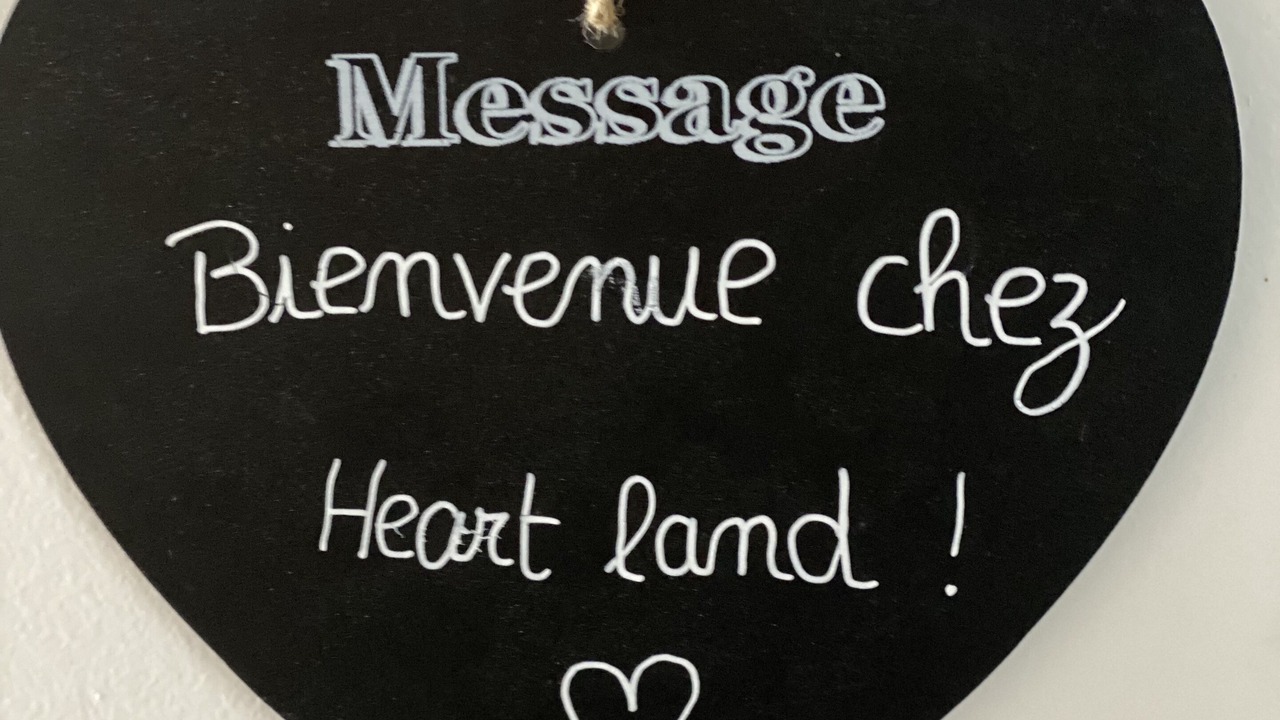 Message
Bienvenue chez
Heart land !